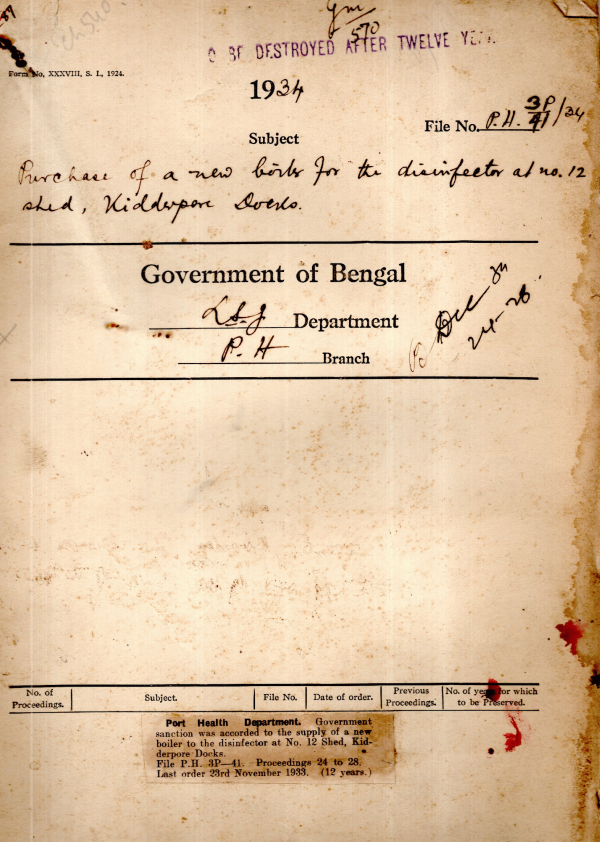 570
O BE DESTROYED AFTER TWELVE YE
Form No, XXXVIII, S. I., 1924.
1934
File No. P.H. 3P/41/34
Subject
Purchase of a new boiler for the disinfector at no. 12
shed, Kidderpore Docks.
Government of Bengal
L.S.G Department
P. H Branch
Dec
24-28
No. of Proceedings.
Subject.
File No.
Date of order.
Previous Proceedings.
No. of years for which to be Preserved.
Port Health Department. Government
sanction was accorded to the supply of a new
boiler to the disinfector at No. 12 Shed, Kid-
derpore Docks.
File P.H. 3P—41. Proceedings 24 to 28.
Last order 23rd November 1933. (12 years.)